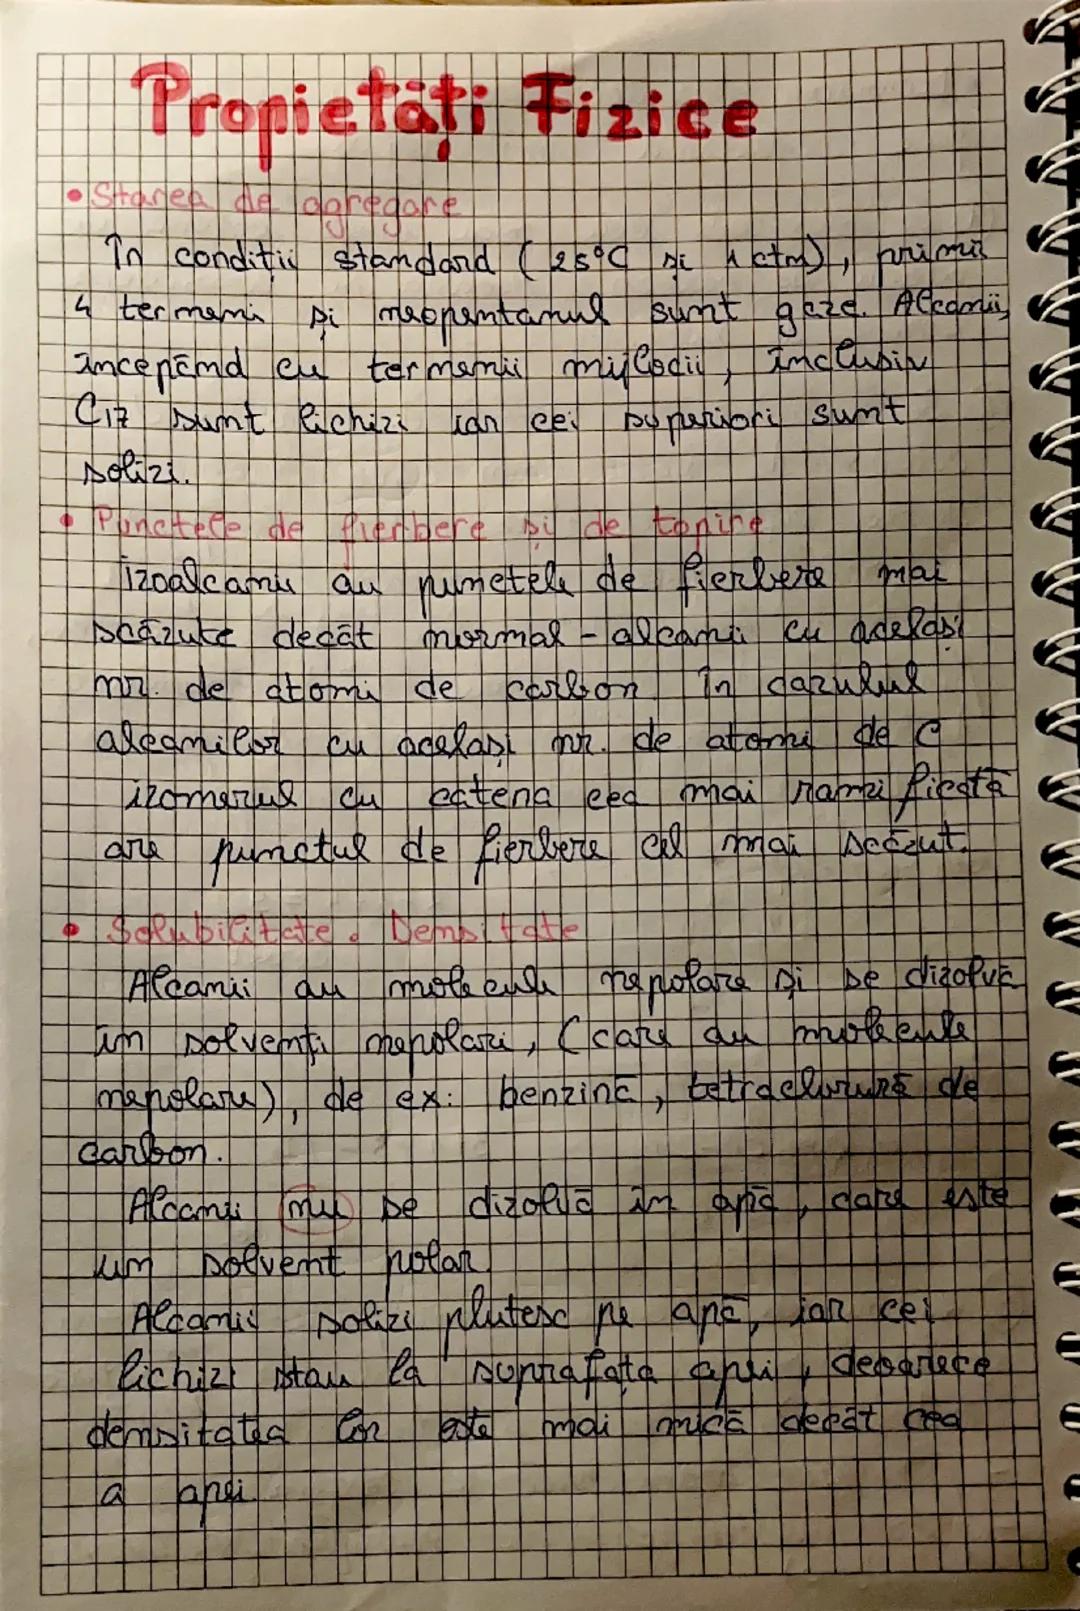 Propietăți Fizice
• Starea de agregare
În condiții standard (25°C și 1 atm), primii
4 termeni și neopentanul sunt gaze. Alcanii,
începând cu termenii mijlocii, inclusiv
C17 sunt lichizi iar cei superiori sunt
solizi.
• Punctele de fierbere și de topire
izoalcanii au punctele de fierbere mai
scăzute decât normal-alcanii cu același
nr. de atomi de carbon în cazulul
alcanilor cu același nr. de atomi de C
izomerul cu catena cea mai ramificată
are punctul de fierbere cel mai scăzut.
• Solubilitate. Densitate
Alcanii au molecule nepolare și se dizolvă
în solvenți nepolari, (care au molecule
nepolare), de ex: benzină, tetraclorură de
carbon.
Alcanii nu se dizolvă în apă, care este
un solvent polar
Alcanii solizi plutesc pe apă, iar cei
lichizi stau la suprafața apei, deoarece
densitatea lor este mai mică decât cea
a apei.